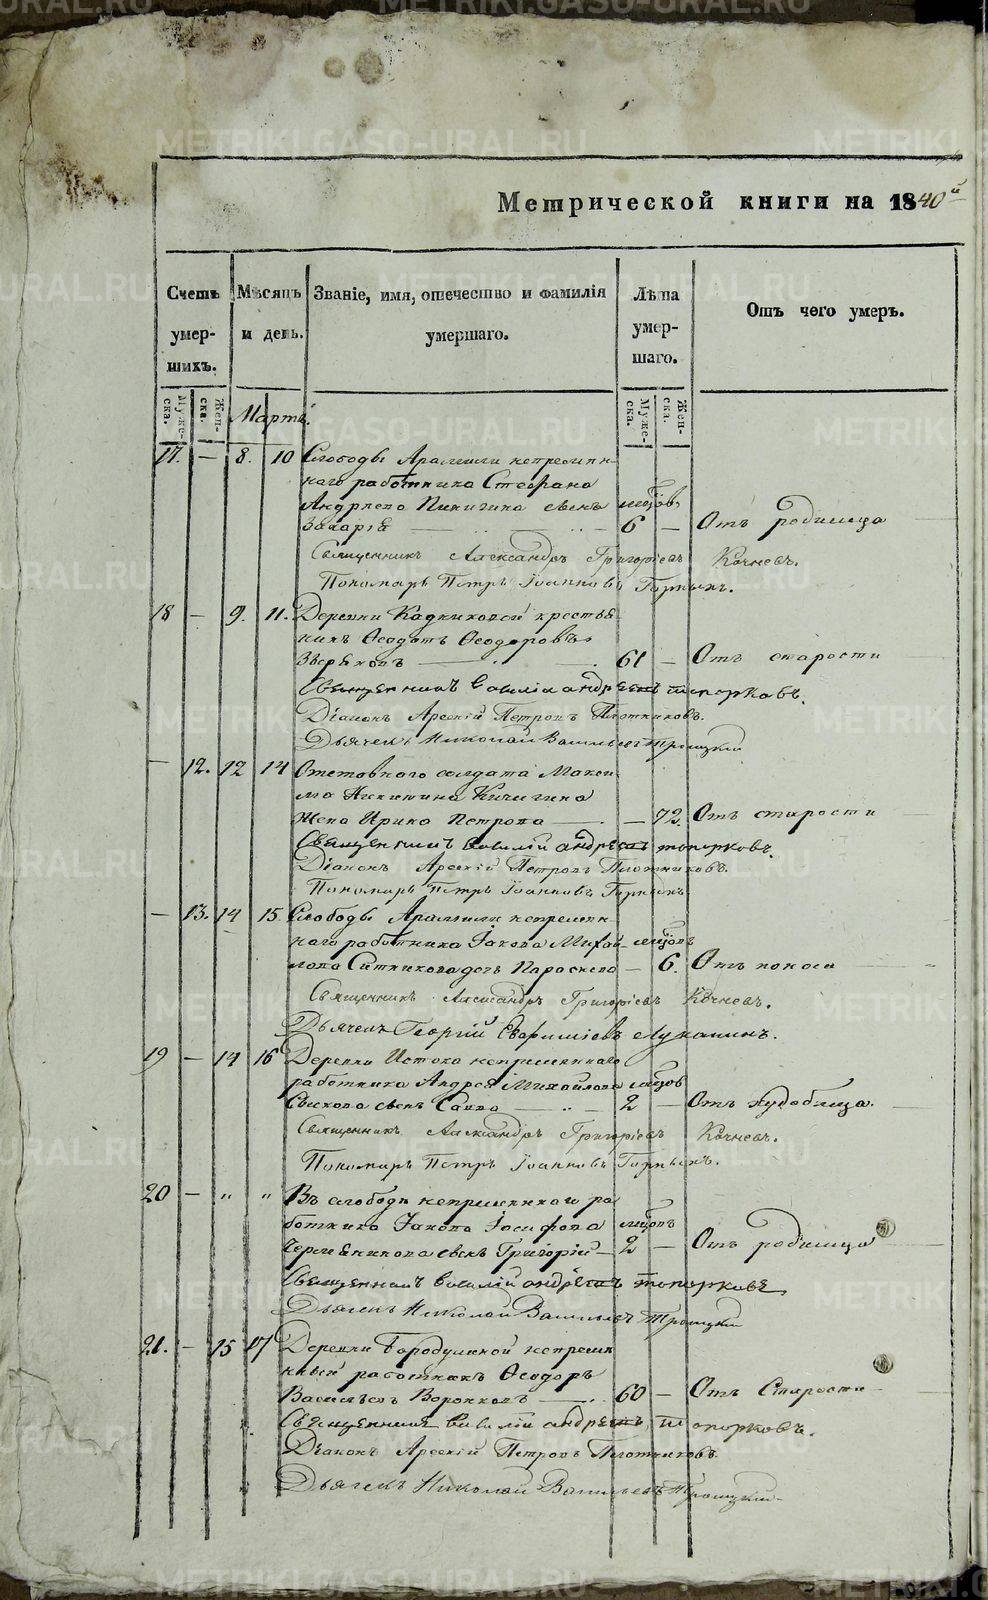 METRIKI.GASO-URAL.RU
Метрической книги на 1840й
Счетъ умершихъ.
Мѣсяцъ и день.
Званіе, имя, отечество и фамилія умершаго.
Лѣта умершаго.
Отъ чего умеръ.
Мужеска.
Женска.
Мужеска.
Женска.
Мартъ.
17. — 8. 10 Слободы Арамили непремѣн-
наго работника Стефана
Андреева Пичигина сынъ мцов.
Захарія 6 — Отъ родимца
Священникъ Александръ Григорьевъ Кочневъ.
Пономарь Петръ Іоанновъ Горныхъ.
18 — 9. 11. Деревни Кадниковой крестья
нинъ Ѳеодотъ Ѳеодоровъ
Звѣревъ — 61 — Отъ старости
Священникъ Василій Андреевъ Топорковъ.
Діаконъ Арсеній Петровъ Плотниковъ.
Дьячекъ Николай Васильевъ Троицкій
— 12. 12 14 Отставного солдата Макси
ма Никитина Кичигина
Жена Ирина Петрова — — 72. Отъ старости
Священникъ Василій Андреевъ Топорковъ.
Діаконъ Арсеній Петровъ Плотниковъ.
Пономарь Петръ Іоанновъ Горныхъ
— 13. 14 15. Слободы Арамили непремѣн-
наго работника Іакова Михай- мцов
лова Ситникова дочь Параскева — 6. Отъ поноса
Священникъ Александръ Григорьевъ Кочневъ.
Дьячекъ Георгій Лукапинъ.
19 — 14 16 Деревни Истока непремѣннаго
работника Андрея Михайлова мцов
сынъ Савва — 2 — Отъ худобища.
Священникъ Александръ Григорьевъ Кочневъ.
Пономарь Петръ Іоанновъ Горныхъ.
20 — " " Въ слободѣ непремѣннаго ра
ботника Іакова Іосифова мцов
сынъ Григорій — 2 — Отъ родимца
Священникъ Василій Андреевъ Топорковъ
Дьячекъ Николай Васильевъ Троицкій
21. — 15 17 Деревни Бородулиной непремѣн
ный работникъ Ѳеодоръ
Васильевъ Воронковъ — 60 — Отъ Старости
Священникъ Василій Андреевъ Топорковъ.
Діаконъ Арсеній Петровъ Плотниковъ.
Дьячекъ Николай Васильевъ Троицкій